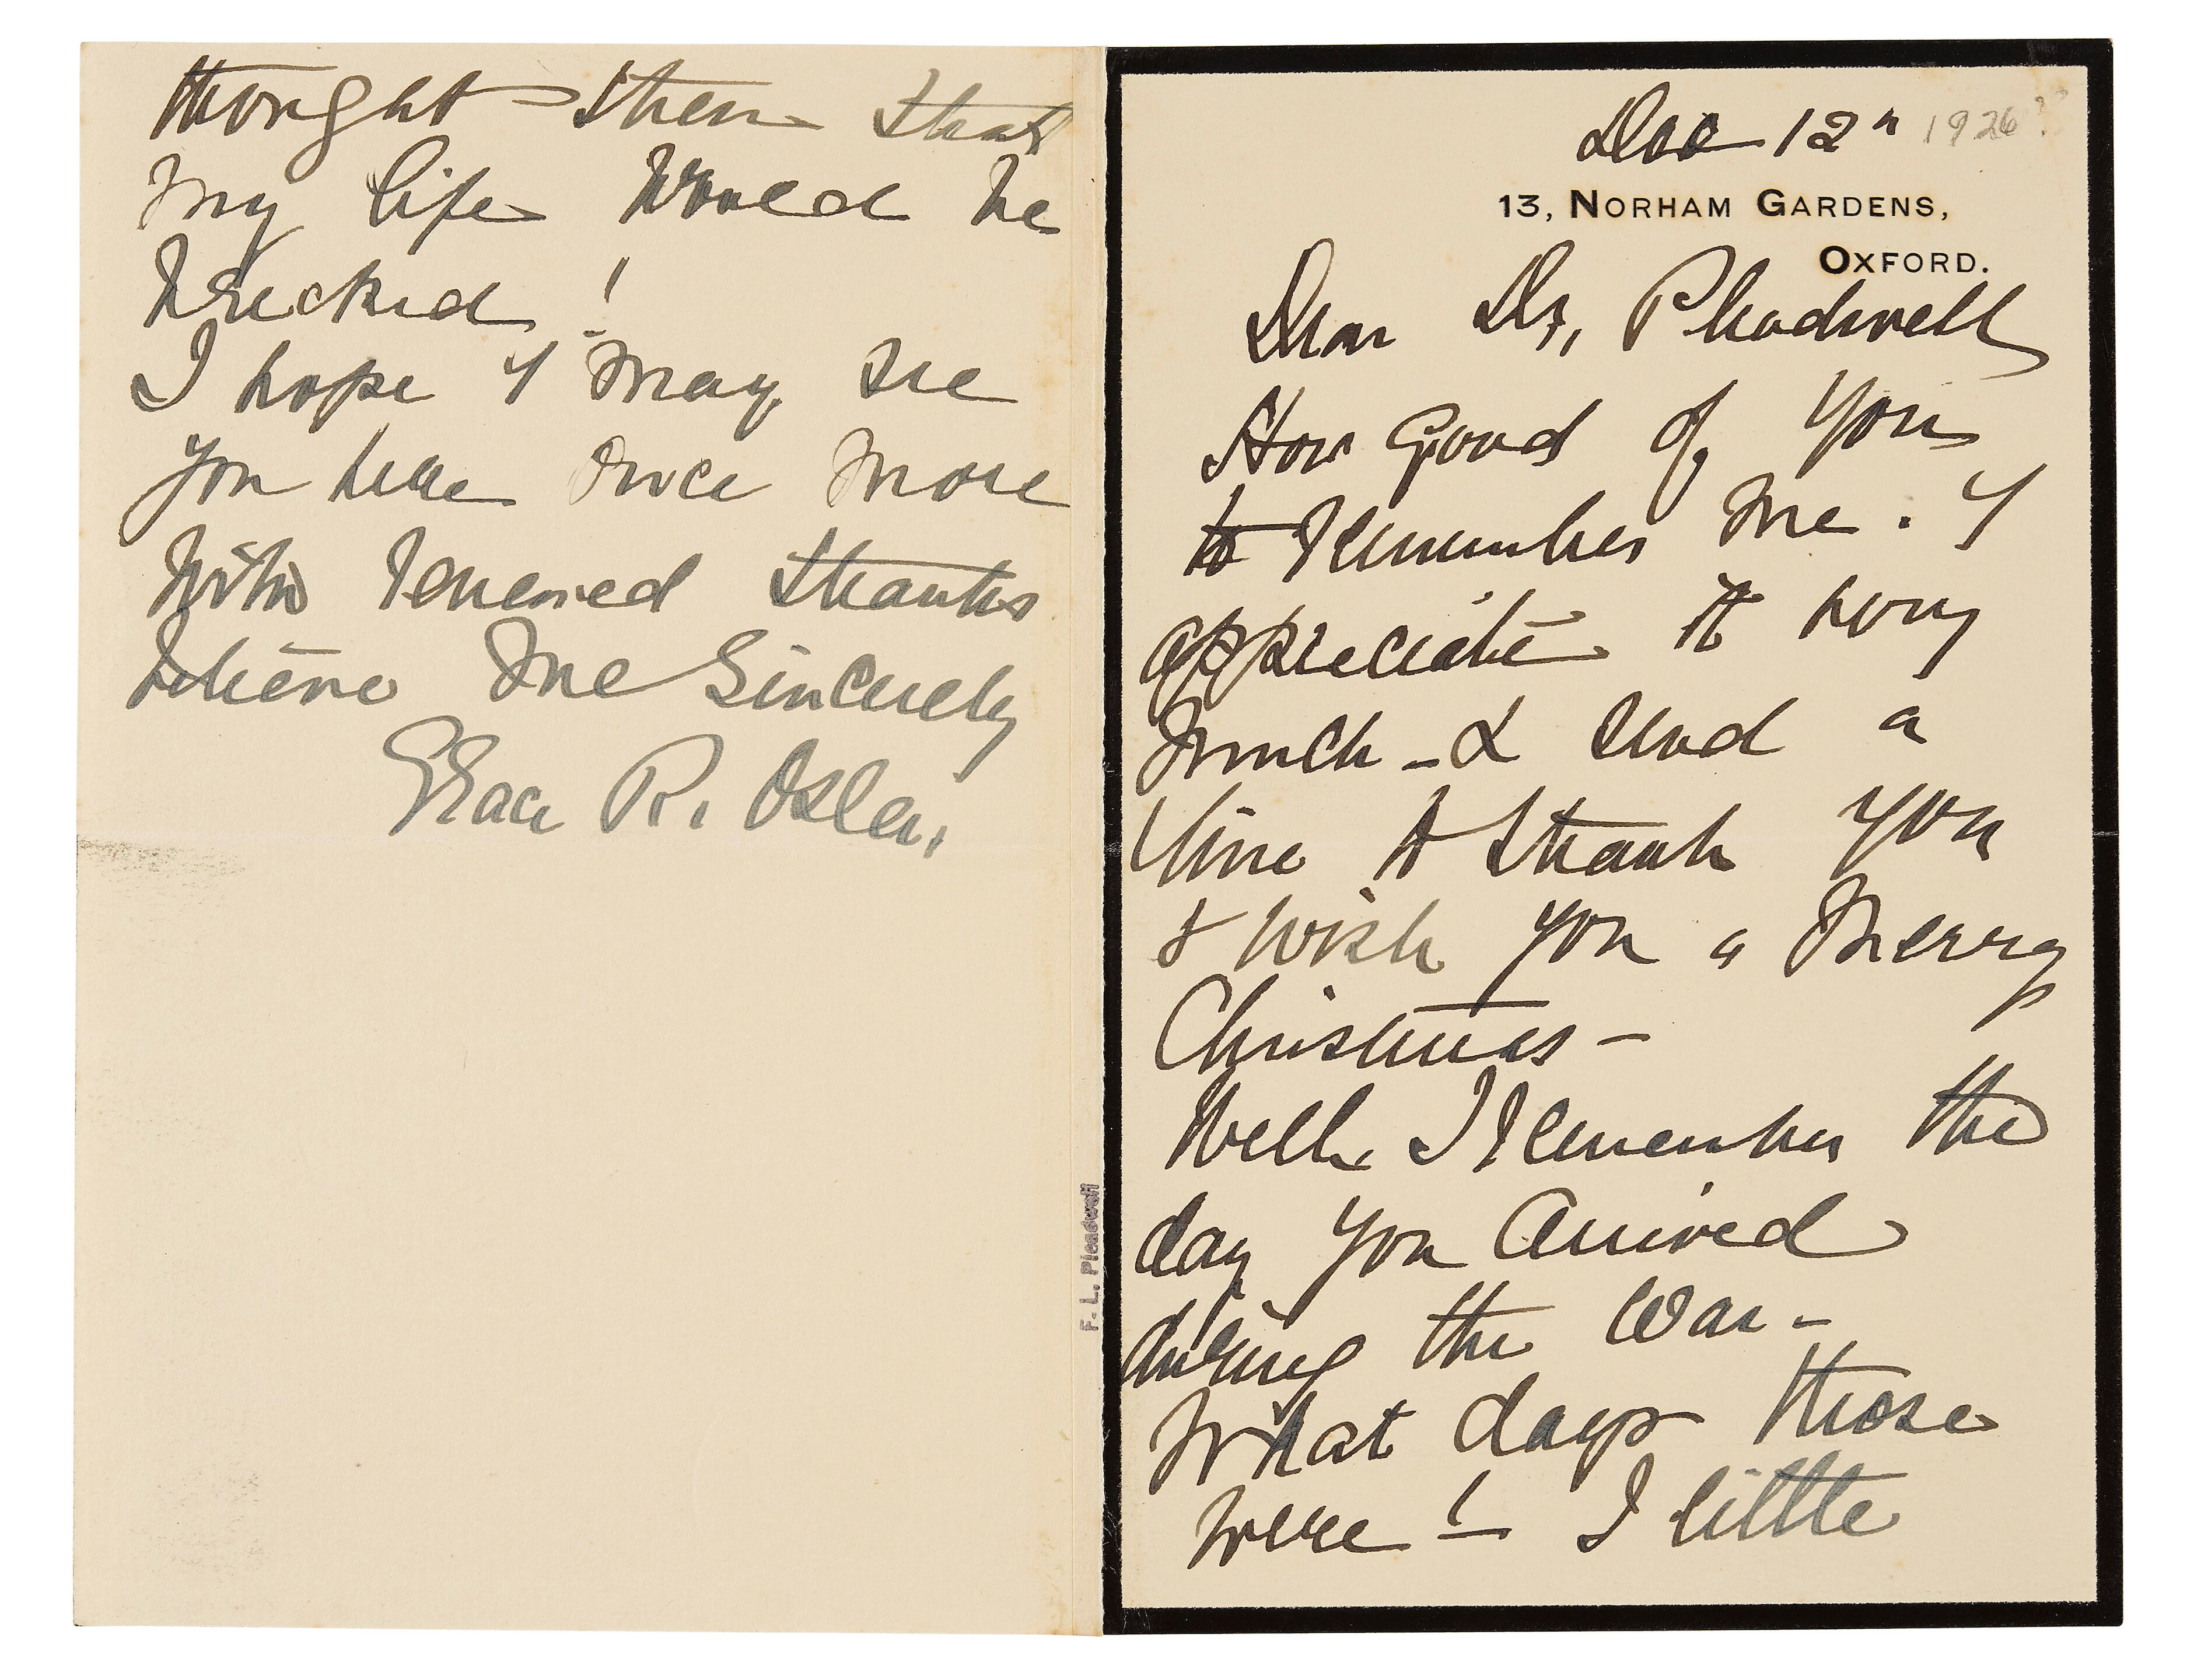 Dec 12th 1926??
13, NORHAM GARDENS,
OXFORD.
Dear Dr, Pleadwell
How Good of You
to remember me. I
appreciate it very
much - & send a
line to thank you
& wish you a Merry
Christmas -
Well I remember the
day you arrived
during the War -
What days those
were! - I little
thought then that
my life would be
wrecked!
I hope I may see
you here once more
With renewed thanks
believe me Sincerely
Grace R. Osler.
F. L. Pleadwell